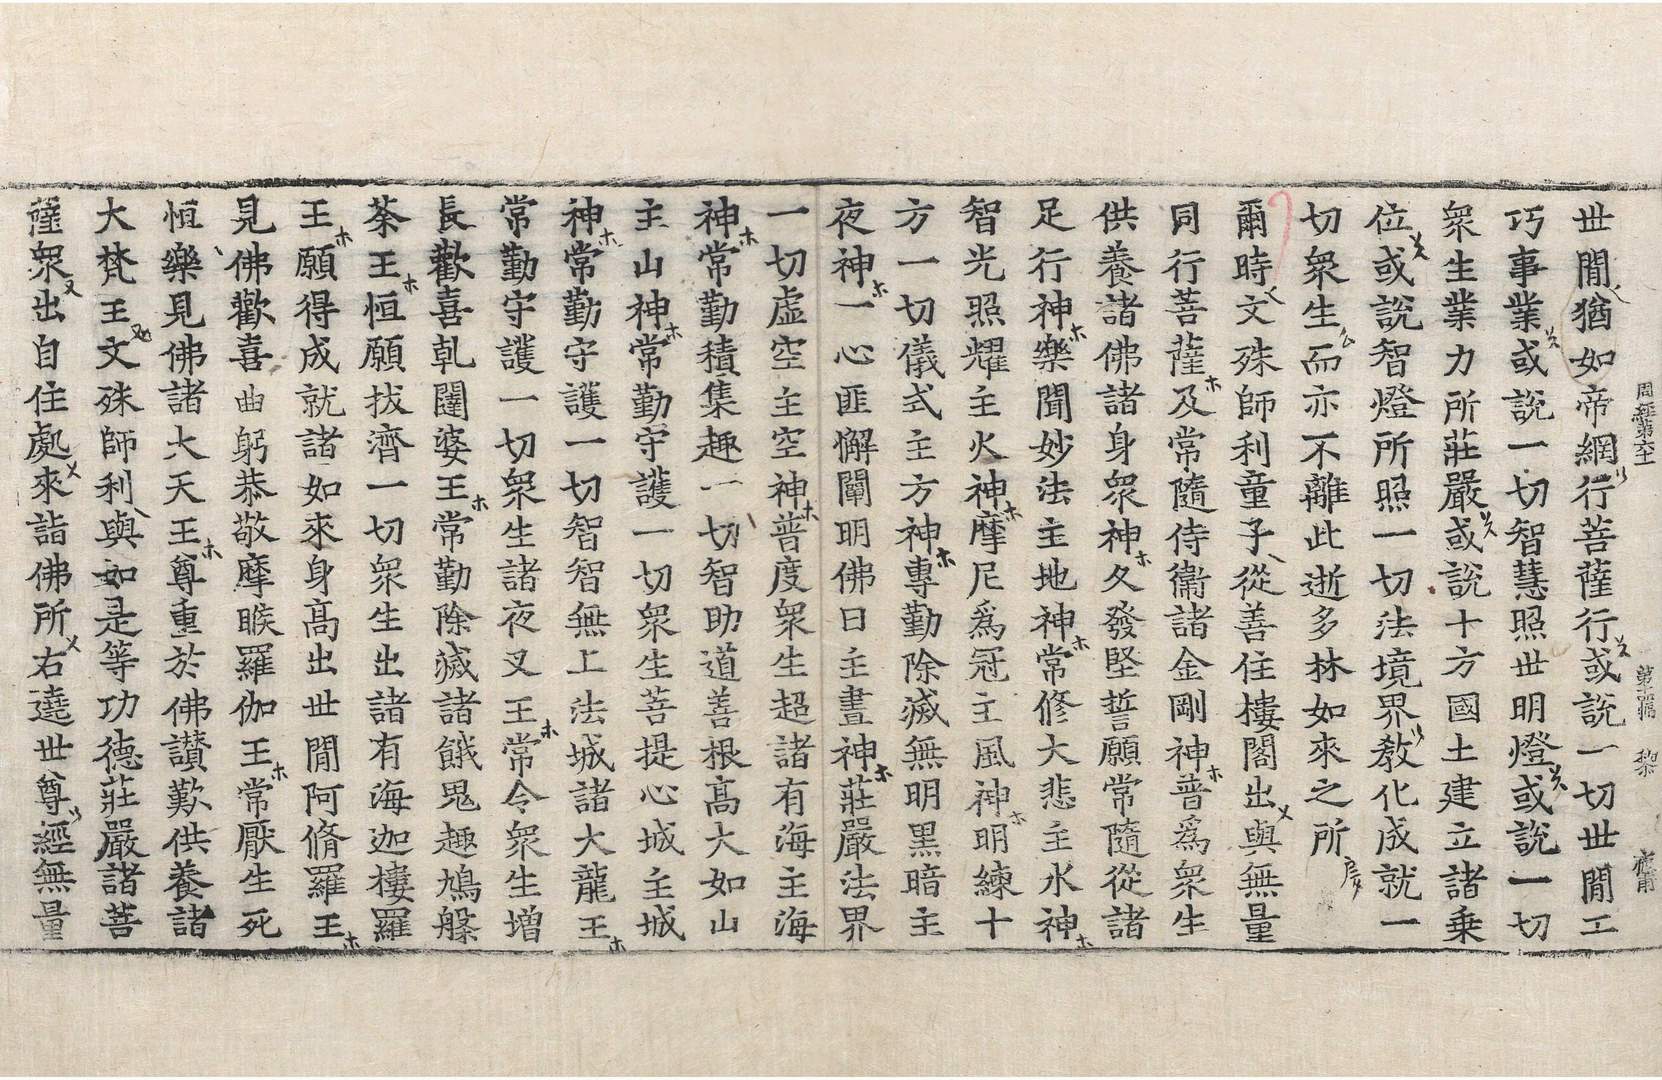 周經第六十一
世閒猶如帝網行菩薩行或說一切世閒工
巧事業或說一切智慧照世明燈或說一切
衆生業力所莊嚴或說十方國土建立諸乗
位或說智燈所照一切法境界敎化成就一
切衆生而亦不離此逝多林如來之所
爾時文殊師利童子從善住樓閣出與無量
同行菩薩及常隨侍衞諸金剛神普爲衆生
供養諸佛諸身衆神久發堅誓願常隨從諸
足行神樂聞妙法主地神常修大悲主水神
智光照耀主火神摩尼爲冠主風神明練十
方一切儀式主方神專勤除滅無明黑暗主
夜神一心匪懈闡明佛日主晝神莊嚴法界
一切虛空主空神普度衆生超諸有海主海
神常勤積集趣一切智助道善根高大如山
主山神常勤守護一切衆生菩提心城主城
神常勤守護一切智智無上法城諸大龍王
常勤守護一切衆生諸夜叉王常令衆生增
長歡喜乹闥婆王常勤除滅諸餓鬼趣鳩槃
荼王恒願拔濟一切衆生出諸有海迦樓羅
王願得成就諸如來身高出世閒阿脩羅王
見佛歡喜曲躬恭敬摩睺羅伽王常厭生死
恒樂見佛諸大天王尊重於佛讃歎供養諸
大梵王文殊師利與如是等功德莊嚴諸菩
薩衆出自住處來詣佛所右遶世尊經無量